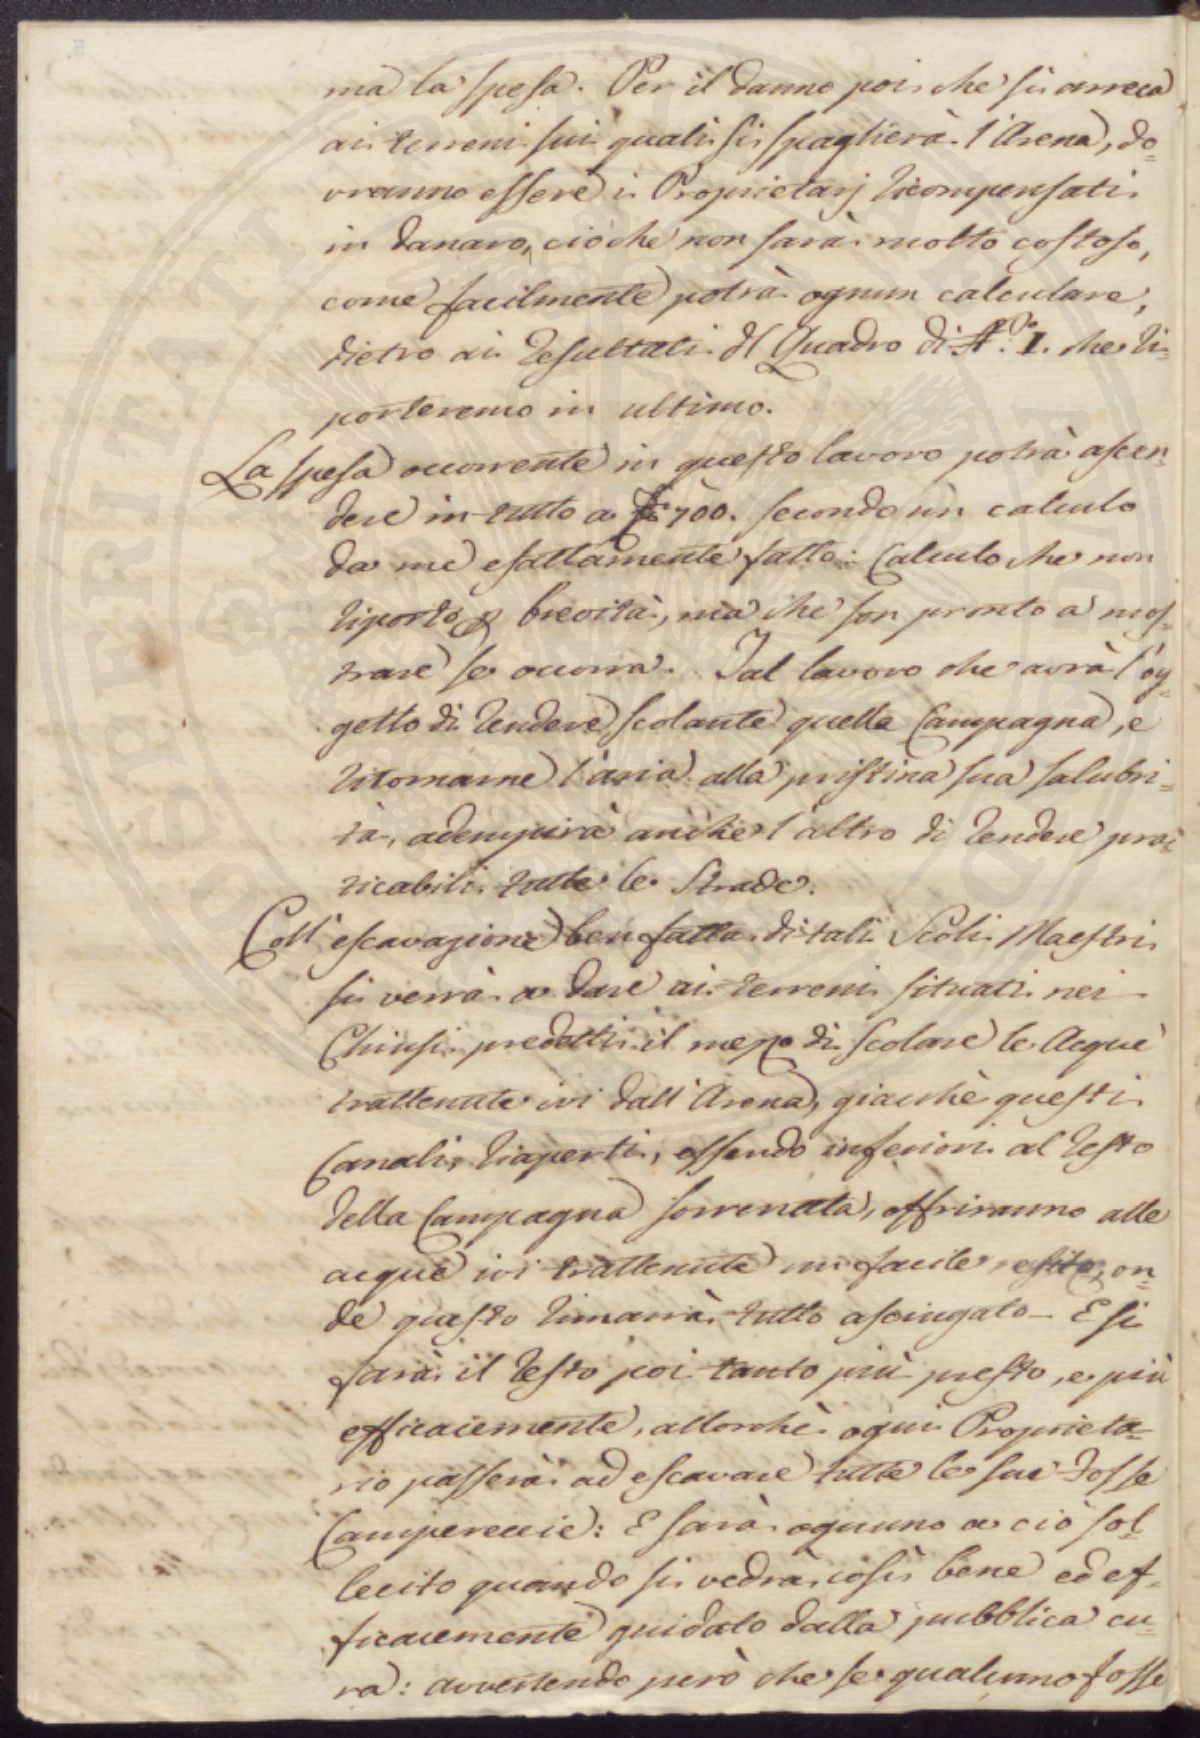 ma la spesa. Per il danno poi che si arreca
ai terreni sui quali si spaglierà l'Arena, do=
vranno essere i Proprietarj ricompensati
in danaro, ciò che non sarà molto costoso,
come facilmente potrà ognun calculare,
dietro ai resultati del Quadro di N.º I. che ri=
porteremo in ultimo.
La spesa occorrente in questo lavoro potrà ascen=
dere in tutto a 700. secondo un calculo
da me esattamente fatto: Calculo che non
riporto p brevità, ma che son pronto a mos=
trare se occorra. Tal lavoro che avrà l'og=
getto di rendere scolante quella Campagna, e
ritornarne l'aria alla pristina sua salubri=
tà, adempirà anche l'altro di rendere pra=
ticabili tutte le Strade.
Coll'escavazione ben fatta di tali Scoli Maestri
si verrà a dare ai terreni situati nei
Chiusi predetti il mezzo di scolare le Acque
trattenute ivi dall'Arena, giacchè questi
Canali riaperti, essendo inferiori al resto
della Campagna sorrenata, offriranno alle
acque ivi trattenute un facile esito, on=
de questo rimarrà tutto asciugato - E si
farà il resto poi tanto più presto, e più
efficacemente, allorchè ogni Proprieta=
rio passerà ad escavare tutte le sue Fosse
Camperecie: E sarà ognuno a ciò sol=
lecito quando si vedrà così bene ed ef=
ficacemente guidato dalla pubblica cu=
ra: avvertendo però che se qualcuno fosse
PROSPERITATI